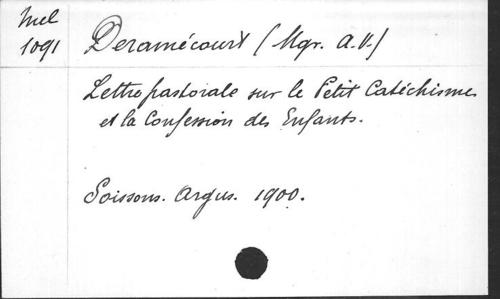 Mel
1091
Deramécourt (Mgr. A.V.)
Lettre pastorale sur le Petit Catéchisme
et la Confession des Enfants.
Soissons. Argus. 1900.